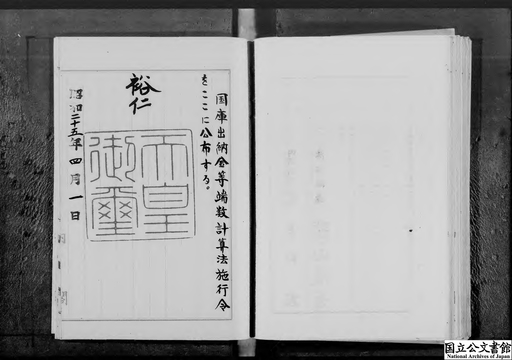 国庫出納金等端数計算法施行令
をここに公布する。
裕仁
天皇
御璽
昭和二十五年四月一日
国立公文書館
National Archives of Japan